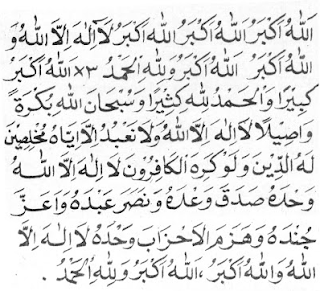 اَللهُ اَكْبَرُ اَللهُ اَكْبَرُ اَللهُ اَكْبَرُ لَآاِلٰهَ اِلَّا اللهُ وَ
اللهُ اَكْبَرُ اَللهُ اَكْبَرُ وَلِلّٰهِ الْحَمْدُ ×٣ اَللهُ اَكْبَرُ
كَبِيْرًا وَالْحَمْدُ لِلّٰهِ كَثِيْرًا وَسُبْحَانَ اللهِ بُكْرَةً
وَاَصِيْلًا لَااِلٰهَ اِلَّا اللهُ وَلَانَعْبُدُ اِلَّا اِيَّاهُ مُخْلِصِيْنَ
لَهُ الدِّيْنَ وَلَوْكَرِهَ الْكَافِرُوْنَ لَا اِلٰهَ اِلَّا اللهُ
وَحْدَهُ صَدَقَ وَعْدَهُ وَنَصَرَ عَبْدَهُ وَاَعَزَّ
جُنْدَهُ وَهَزَمَ الْاَحْزَابَ وَحْدَهُ لَا اِلٰهَ اِلَّا
اللهُ وَاللهُ اَكْبَرُ، اَللهُ اَكْبَرُ وَلِلّٰهِ الْحَمْدُ.